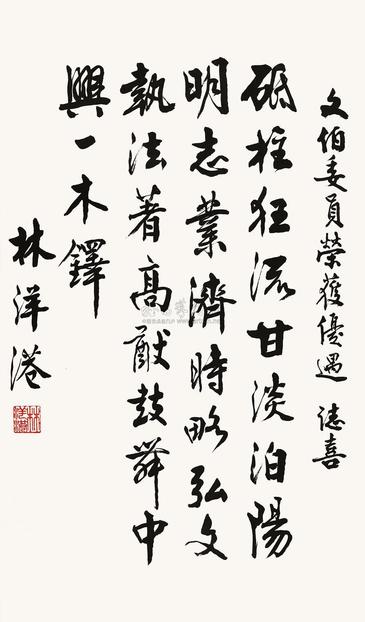 文伯委員榮獲優遇 誌喜
砥柱狂流甘淡泊陽
明志業濟時略弘文
執法著高猷鼓舞中
興一木鐸
林洋港